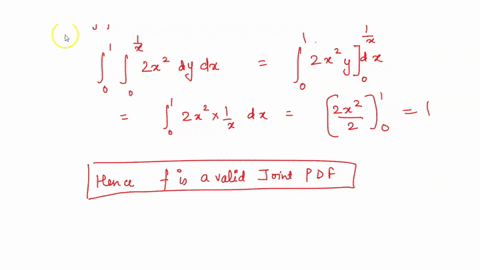 ∫₀¹ ∫₀^{1/x} 2x² dy dx = ∫₀¹ 2x² y]₀^{1/x} dx
= ∫₀¹ 2x² × 1/x dx = [2x²/2]₀¹ = 1
Hence f is a valid Joint PDF